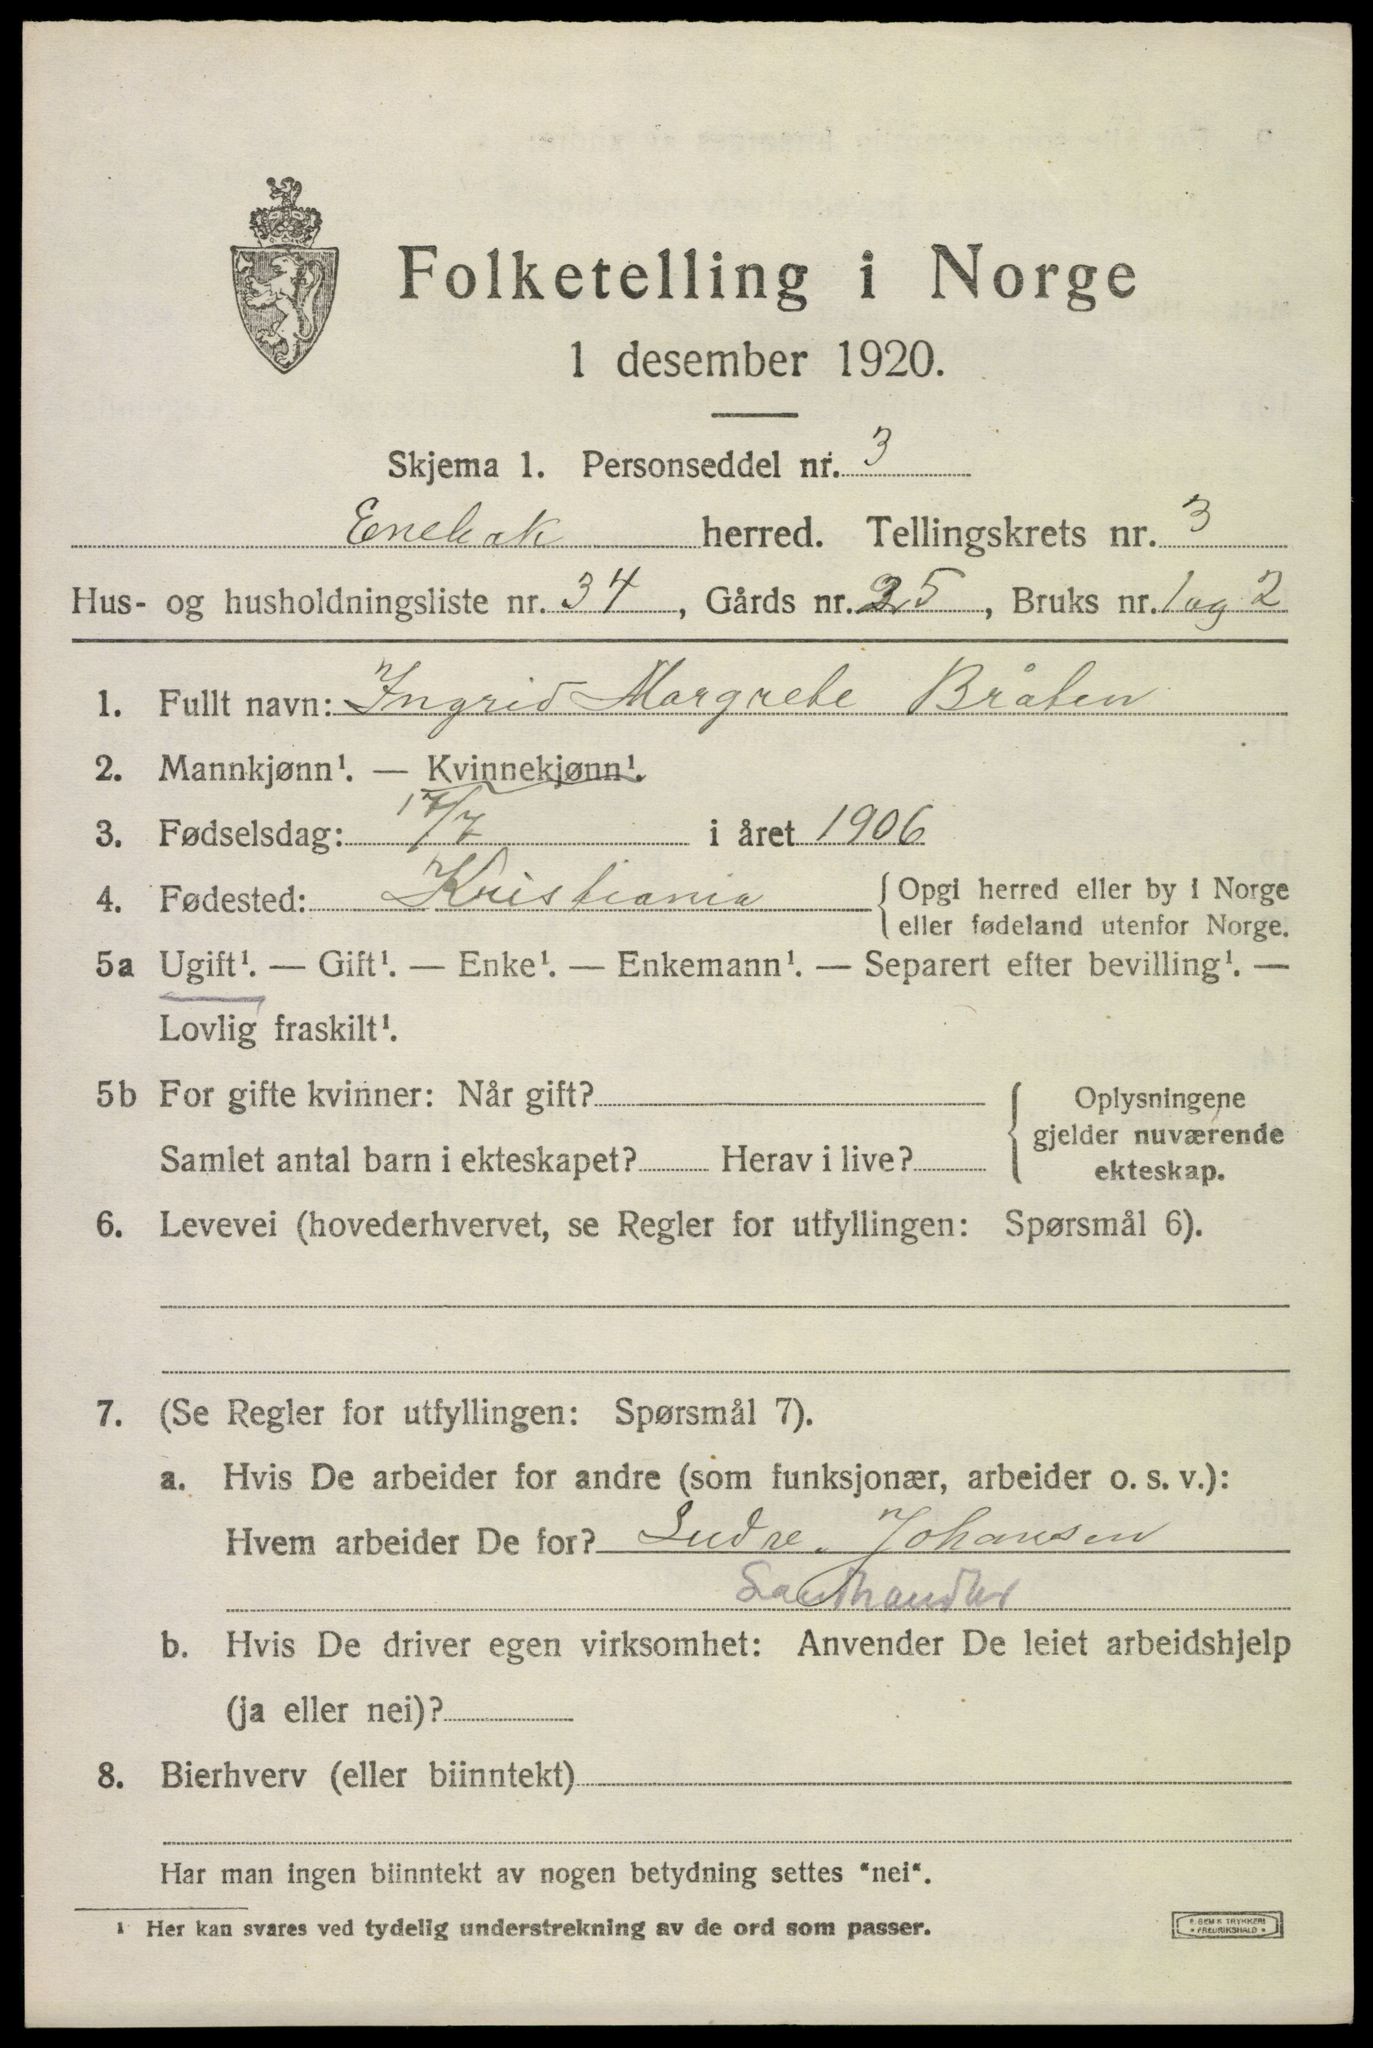 Folketelling i Norge
1 desember 1920.
Skjema 1. Personseddel nr. 3
Enebak herred. Tellingskrets nr. 3
Hus- og husholdningsliste nr. 34, Gårds nr. 25, Bruks nr. 1 og 2
1. Fullt navn: Ingrid Margrete Bråten
2. Mannkjønn¹. — Kvinnekjønn¹.
3. Fødselsdag: 17/7 i året 1906
4. Fødested: Kristiania { Opgi herred eller by i Norge
eller fødeland utenfor Norge.
5a Ugift¹. — Gift¹. — Enke¹. — Enkemann¹. — Separert efter bevilling¹. —
Lovlig fraskilt¹.
5b For gifte kvinner: Når gift? { Oplysningene
gjelder nuværende
Samlet antal barn i ekteskapet? Herav i live?
ekteskap.
6. Levevei (hovederhvervet, se Regler for utfyllingen: Spørsmål 6).
7. (Se Regler for utfyllingen: Spørsmål 7).
a. Hvis De arbeider for andre (som funksjonær, arbeider o. s. v.):
Hvem arbeider De for? Johansen
Landhandler
b. Hvis De driver egen virksomhet: Anvender De leiet arbeidshjelp
(ja eller nei)?
8. Bierhverv (eller biinntekt)
Har man ingen biinntekt av nogen betydning settes "nei".
¹ Her kan svares ved tydelig understrekning av de ord som passer.
TRYKKERI
FREDRIKSHALD